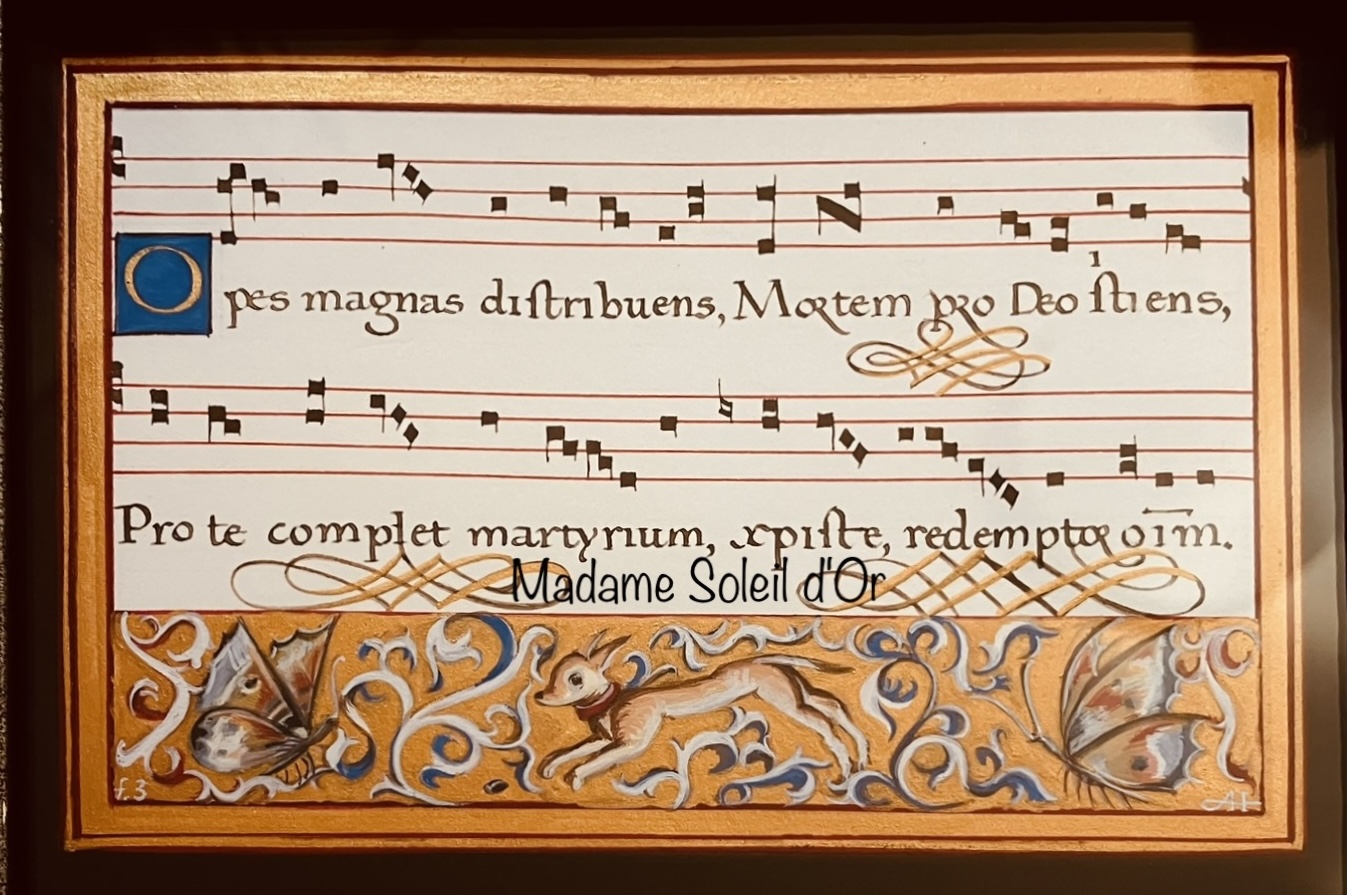 Opes magnas diſtribuens, Mortem pro Deo ſⁱtiens,
Pro te complet martyrium, xpiſte, redemptor oi̅m̅.
Madame Soleil d'Or
f.3